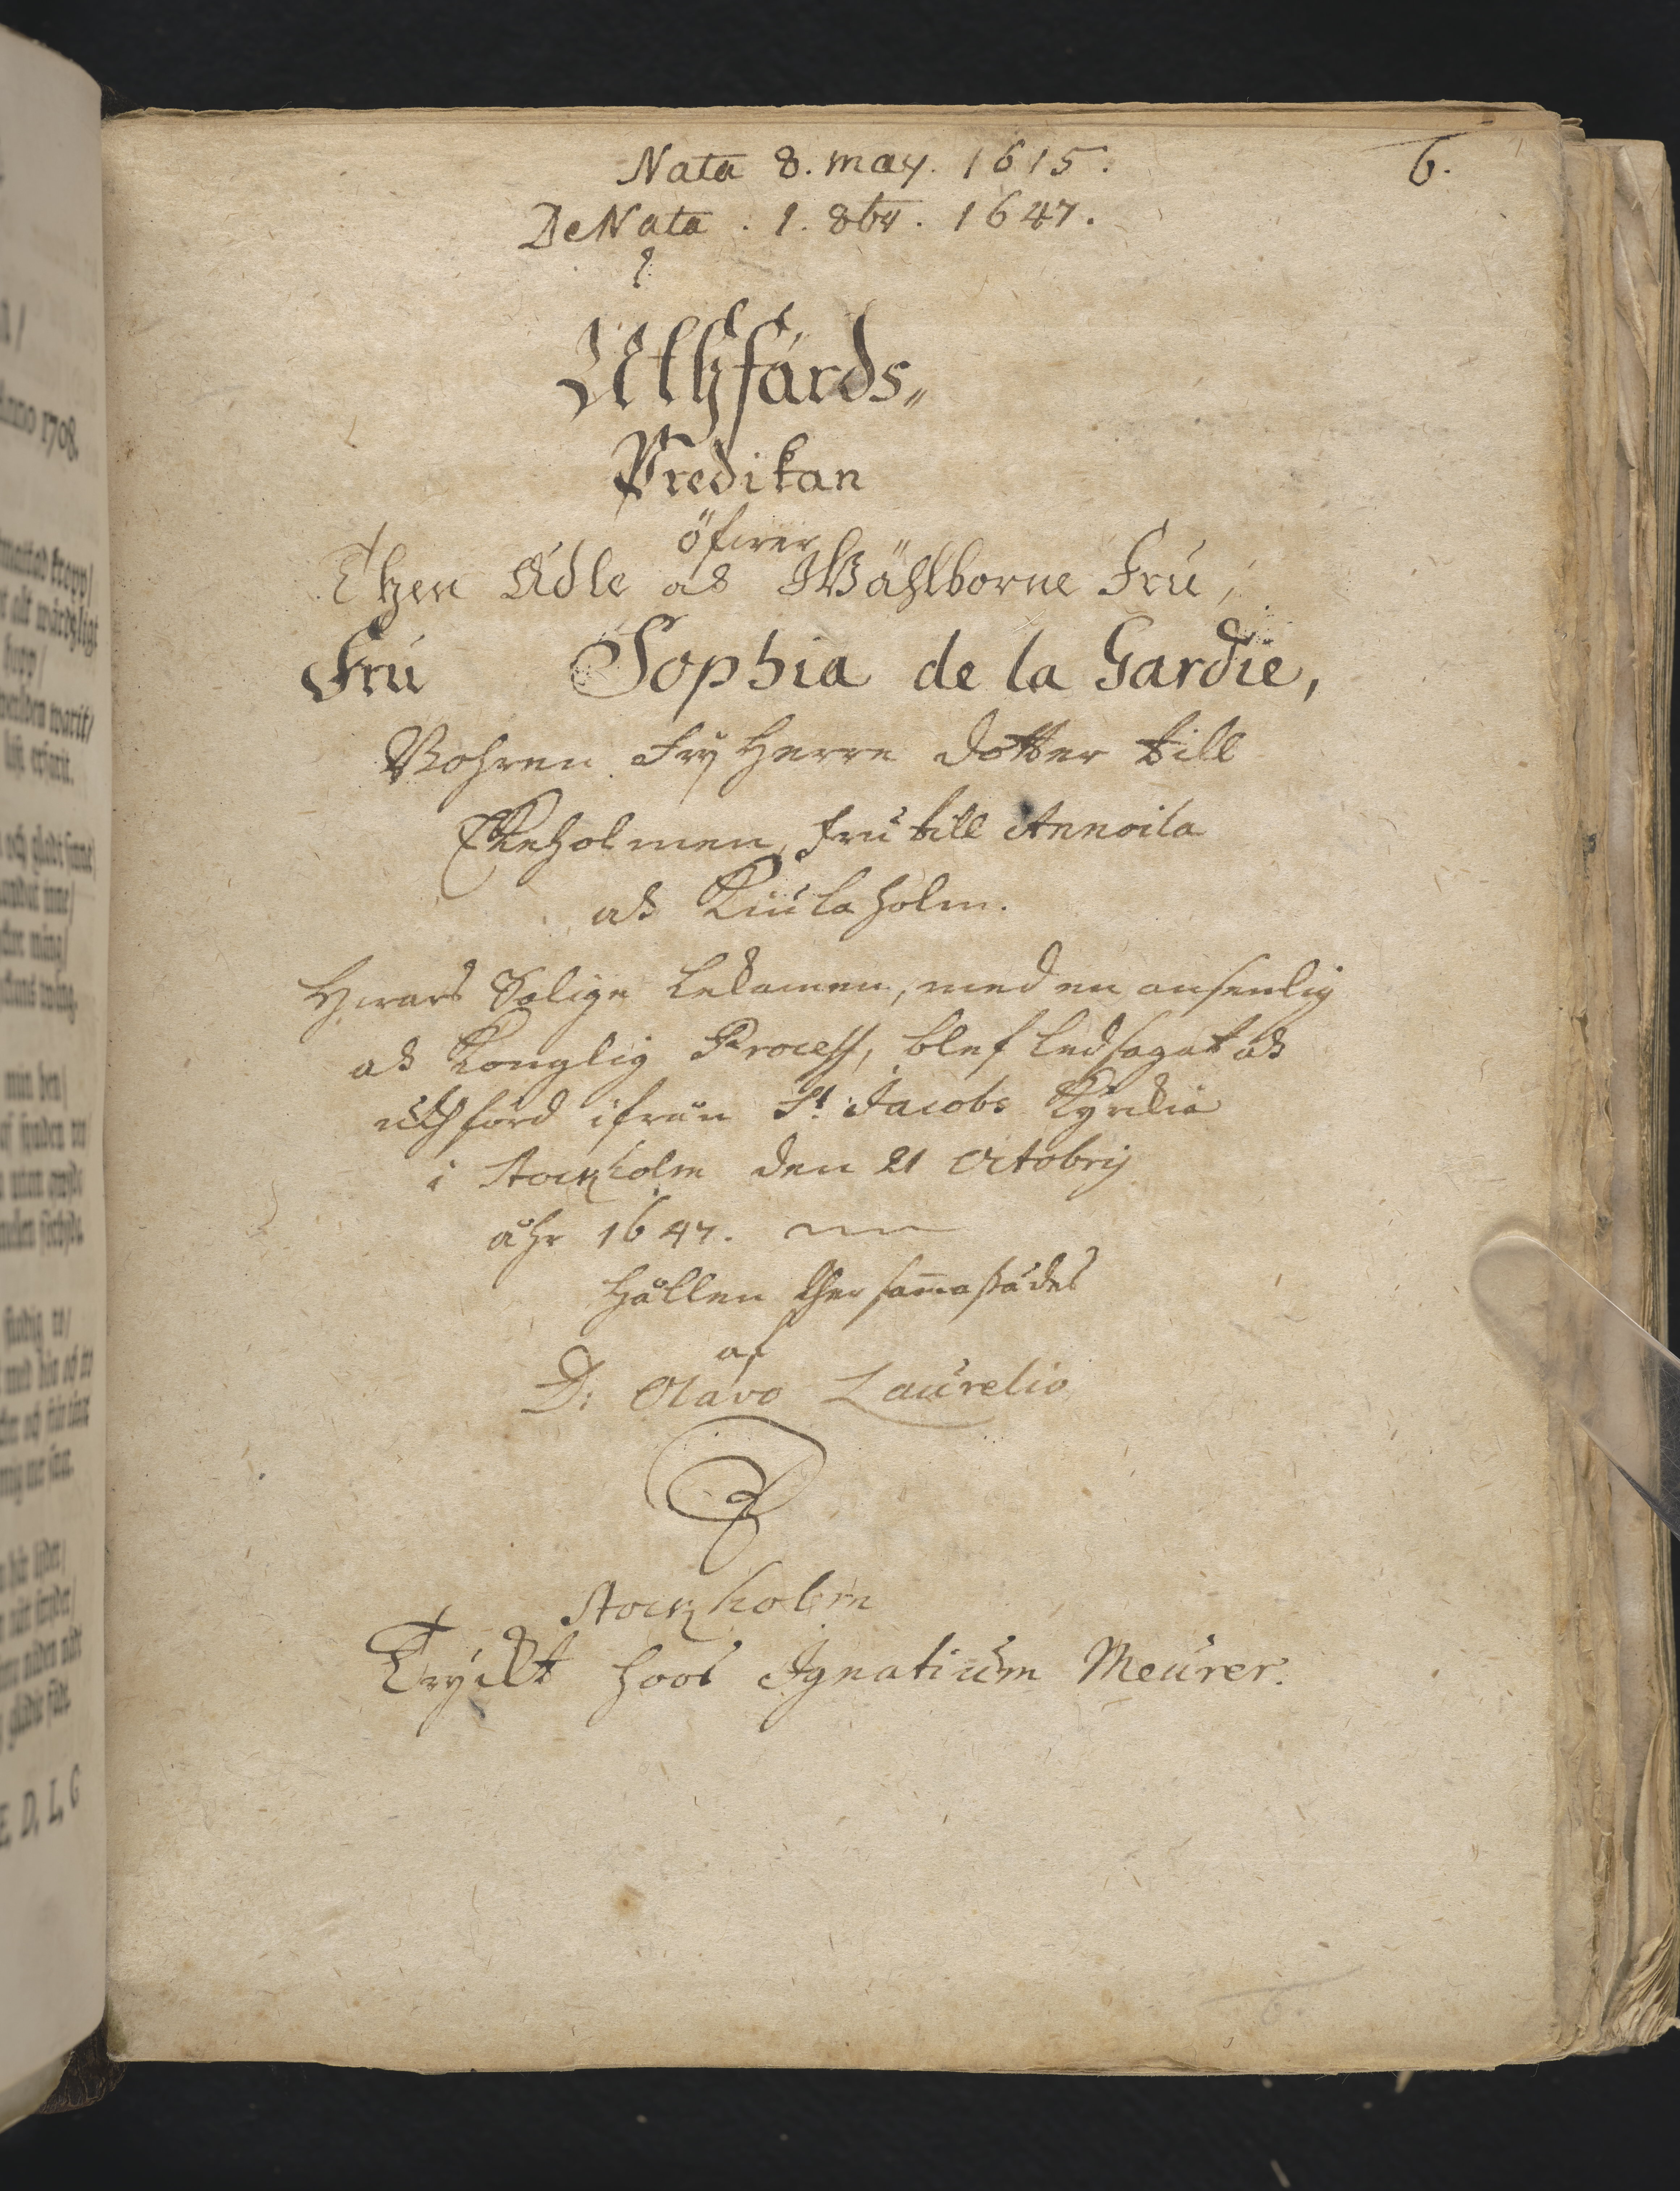 6.
Nata 8. may. 1615.
DeNata. 1. 8br. 1647.
Uthfärds„
Predikan
öfwer
Then Ädle och Wählborne Fru,
Fru Sophia de la Gardie,
Bohren FryHerre dotter till
Ekeholmen, Fru till Annoila
och Kiulaholm.
Hwars Salige Lekamen, med en ansenlig
och Konglig Process, blef ledsagat och
uthförd ifrån St Jacobs Kyrckia
i Stockholm den 21 Octobrij
åhr 1647.
Hållen ther sam̄astädes
af
D: Olavo Laurelio
Stockholm
Tryckt hoos Ignatium Meurer.
Anno 1708.
E. D. L. G